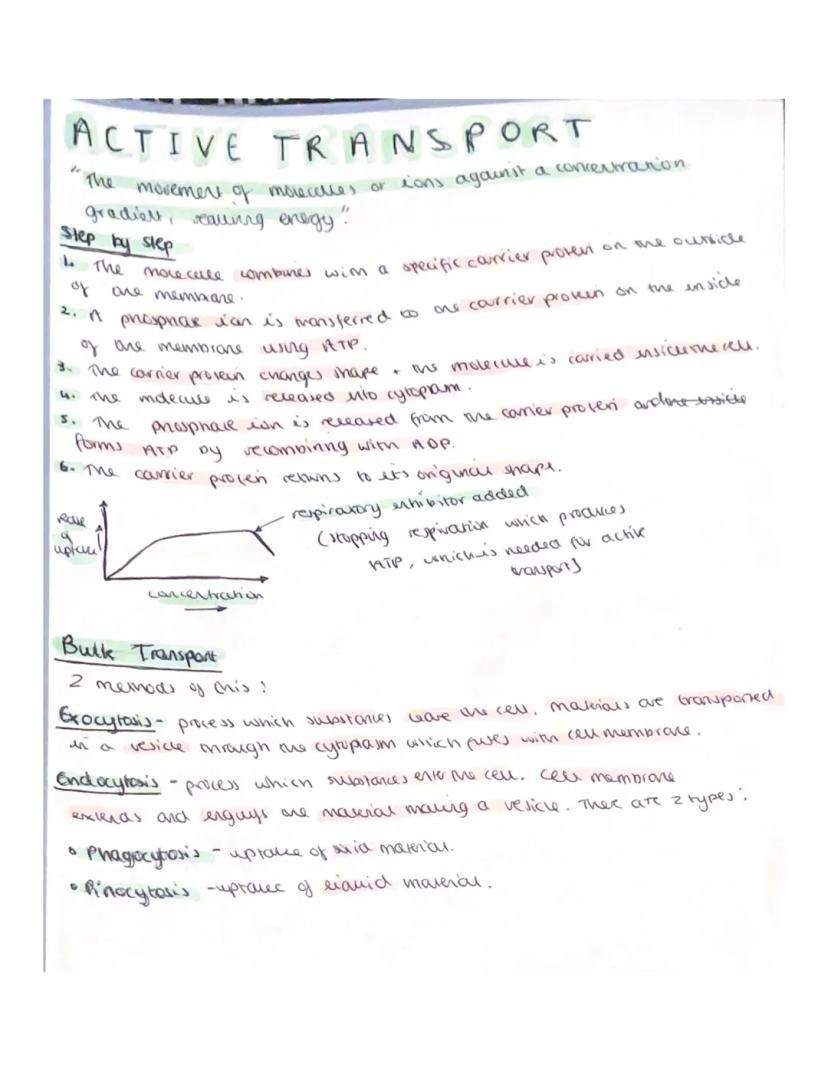 ACTIVE TRANSPORT
"The movement of molecules or ions against a concentration
gradient, requiring energy".
Step by step
1. The molecule combines with a specific carrier protein on the outside
of the membrane.
2. A phosphate ion is transferred to the carrier protein on the inside
of the membrane using ATP.
3. The carrier protein changes shape + the molecule is carried inside the cell.
4. The molecule is released into cytoplasm.
5. The phosphate ion is released from the carrier protein and
forms ATP by recombining with ADP.
6. The carrier protein returns to its original shape.
Rate of uptake
respiratory inhibitor added
(stopping respiration which produces
ATP, which is needed for active
transport)
concentration
Bulk Transport
2 methods of this:
Exocytosis - process which substances leave the cell. Materials are transported
in a vesicle through the cytoplasm which fuses with cell membrane.
Endocytosis - process which substances enter the cell. Cell membrane
extends and engulfs the material making a vesicle. There are 2 types:
• Phagocytosis - uptake of solid material.
• Pinocytosis - uptake of liquid material.